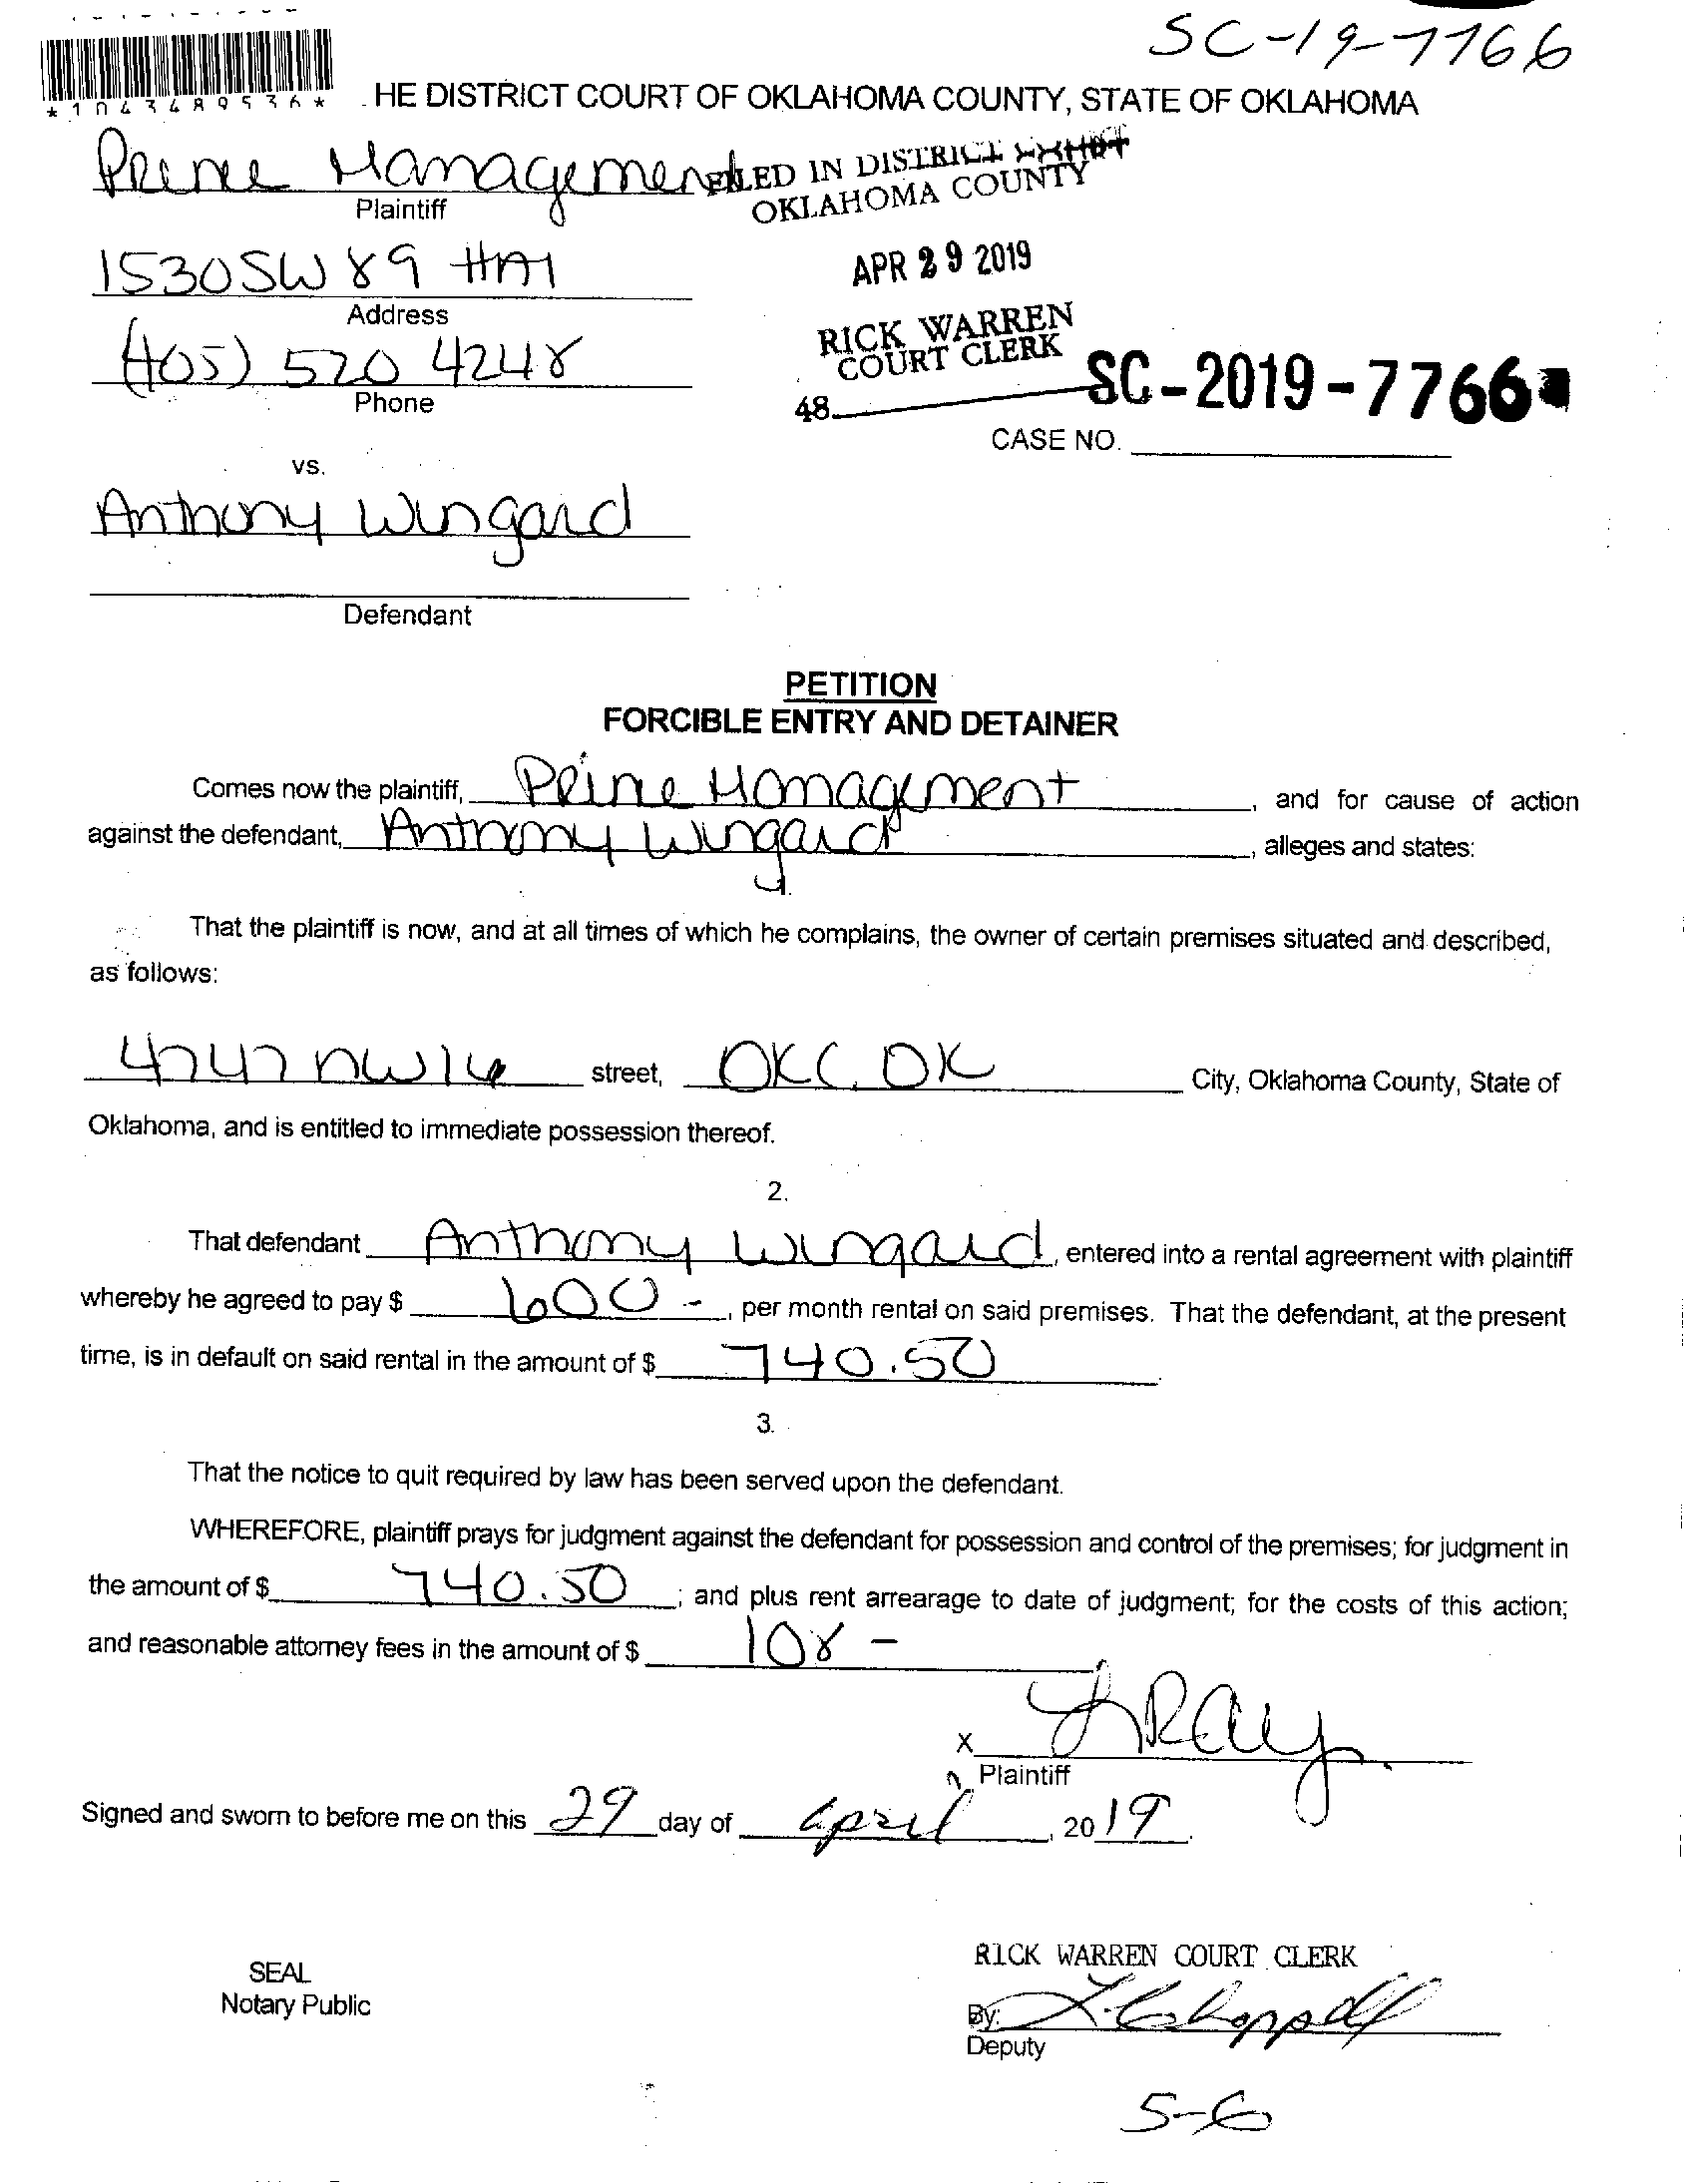 SC-19-7766
*1043489536*
HE DISTRICT COURT OF OKLAHOMA COUNTY, STATE OF OKLAHOMA
Prine Management
FILED IN DISTRICT COURT
OKLAHOMA COUNTY
Plaintiff
1530 SW 89 #A1
APR 29 2019
Address
RICK WARREN
COURT CLERK
(405) 520 4248
SC-2019-7766
Phone
48
CASE NO.
vs.
Anthony Wingard
Defendant
PETITION
FORCIBLE ENTRY AND DETAINER
Comes now the plaintiff, Prine Management, and for cause of action
against the defendant, Anthony Wingard, alleges and states:
1.
That the plaintiff is now, and at all times of which he complains, the owner of certain premises situated and described,
as follows:
4747 NW 16 street, OKC, OK City, Oklahoma County, State of
Oklahoma, and is entitled to immediate possession thereof.
2.
That defendant Anthony Wingard, entered into a rental agreement with plaintiff
whereby he agreed to pay $ 600 -, per month rental on said premises. That the defendant, at the present
time, is in default on said rental in the amount of $ 740.50
3.
That the notice to quit required by law has been served upon the defendant.
WHEREFORE, plaintiff prays for judgment against the defendant for possession and control of the premises; for judgment in
the amount of $ 740.50; and plus rent arrearage to date of judgment; for the costs of this action;
and reasonable attorney fees in the amount of $ 108 -
X Ray
Plaintiff
Signed and sworn to before me on this 29 day of April, 2019.
RICK WARREN COURT CLERK
SEAL
Notary Public
By: L. Chappell
Deputy
5-6